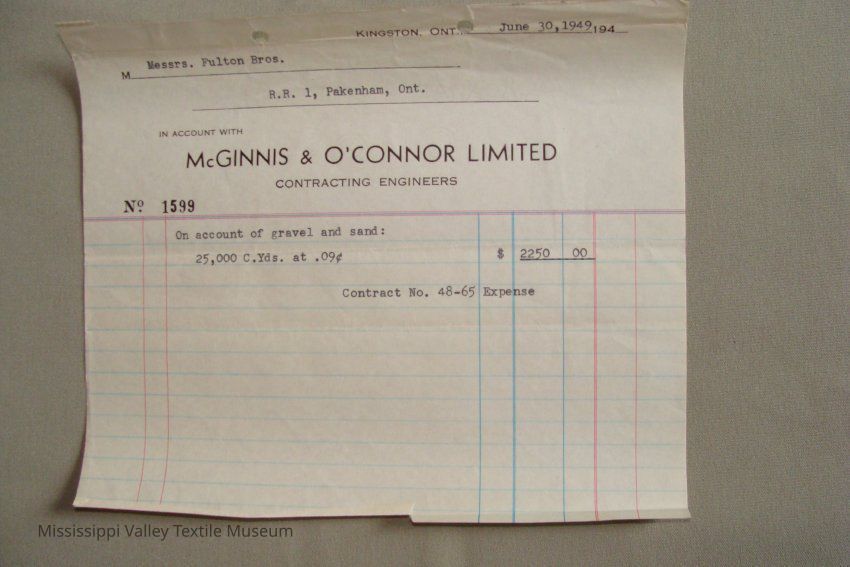 KINGSTON, ONT., June 30, 1949 194
M Messrs. Fulton Bros.
R.R. 1, Pakenham, Ont.
IN ACCOUNT WITH
McGINNIS & O'CONNOR LIMITED
CONTRACTING ENGINEERS
Nº 1599
On account of gravel and sand:
25,000 C.Yds. at .09¢ $ 2250 00
Contract No. 48-65 Expense
Mississippi Valley Textile Museum